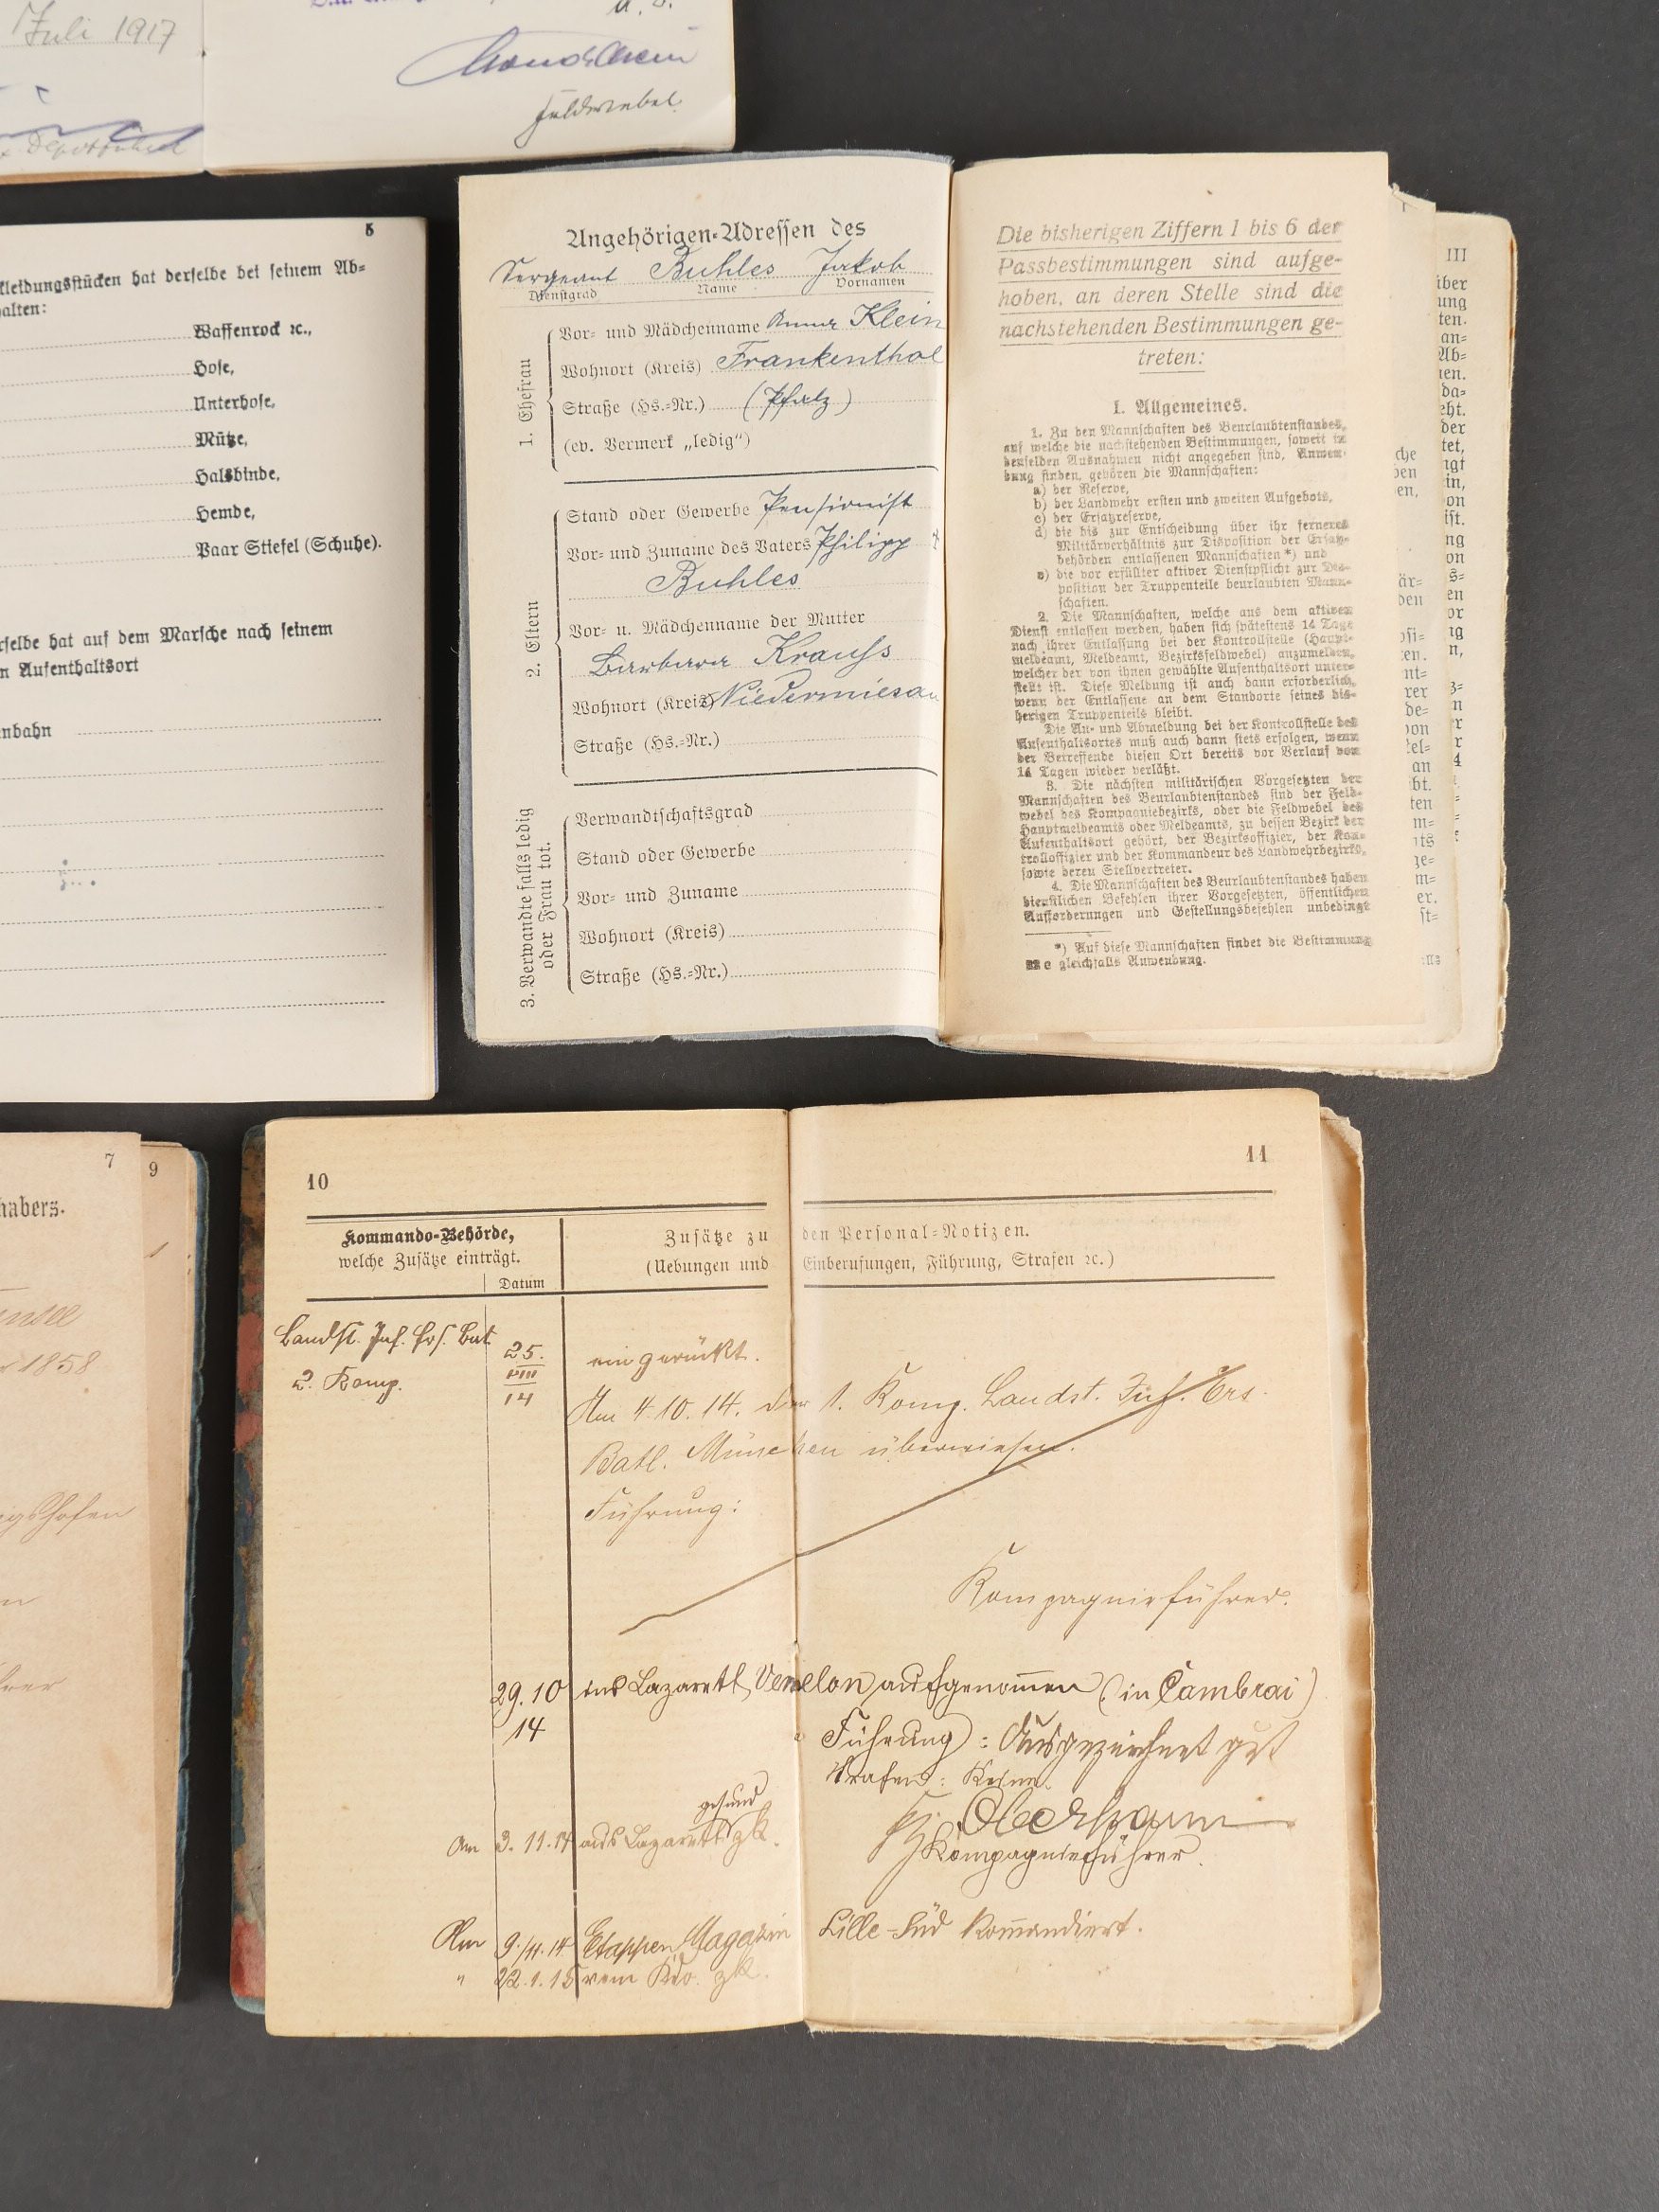 Juli 1917
Feldwebel.
5
kleidungsstücken hat derselbe bei seinem Ab-
alten:
Waffenrock ꝛc.,
Hose,
Unterhose,
Mütze,
Halsbinde,
Hemde,
Paar Stiefel (Schuhe).
rselbe hat auf dem Marsche nach seinem
n Aufenthaltsort
nbahn
Angehörigen-Adressen des
Sergeant Buhles Jakob
Dienstgrad Name Vornamen
1. Ehefrau
Vor- und Mädchenname Anna Klein
Wohnort (Kreis) Frankenthal
Straße (Hs.-Nr.) (Pfalz)
(ev. Vermerk „ledig“)
2. Eltern
Stand oder Gewerbe Pensionist
Vor- und Zuname des Vaters Philipp
Buhles
Vor- u. Mädchenname der Mutter
Barbara Krauss
Wohnort (Kreis) Niedermiesau
Straße (Hs.-Nr.)
3. Verwandte falls ledig
oder Frau tot.
Verwandtschaftsgrad
Stand oder Gewerbe
Vor- und Zuname
Wohnort (Kreis)
Straße (Hs.-Nr.)
Die bisherigen Ziffern 1 bis 6 der
Passbestimmungen sind aufge-
hoben, an deren Stelle sind die
nachstehenden Bestimmungen ge-
treten:
I. Allgemeines.
1. Zu den Mannschaften des Beurlaubtenstandes,
auf welche die nachstehenden Bestimmungen, soweit in
denselben Ausnahmen nicht angegeben sind, Anwen-
dung finden, gehören die Mannschaften:
a) der Reserve,
b) der Landwehr ersten und zweiten Aufgebots,
c) der Ersatzreserve,
d) die bis zur Entscheidung über ihr ferneres
Militärverhältnis zur Disposition der Ersatz-
behörden entlassenen Mannschaften *) und
e) die vor erfüllter aktiver Dienstpflicht zur Dis-
position der Truppenteile beurlaubten Mann-
schaften.
2. Die Mannschaften, welche aus dem aktiven
Dienst entlassen werden, haben sich spätestens 14 Tage
nach ihrer Entlassung bei der Kontrollstelle (Haupt-
meldeamt, Meldeamt, Bezirksfeldwebel) anzumelden,
welcher der von ihnen gewählte Aufenthaltsort unter-
stellt ist. Diese Meldung ist auch dann erforderlich,
wenn der Entlassene an dem Standorte seines bis-
herigen Truppenteils bleibt.
Die An- und Abmeldung bei der Kontrollstelle des
Aufenthaltsortes muß auch dann stets erfolgen, wenn
der Betreffende diesen Ort bereits vor Verlauf von
14 Tagen wieder verläßt.
3. Die nächsten militärischen Vorgesetzten der
Mannschaften des Beurlaubtenstandes sind der Feld-
webel des Kompagniebezirks, oder die Feldwebel des
Hauptmeldeamts oder Meldeamts, zu dessen Bezirk der
Aufenthaltsort gehört, der Bezirksoffizier, der Kon-
trolloffizier und der Kommandeur des Landwehrbezirks,
sowie deren Stellvertreter.
4. Die Mannschaften des Beurlaubtenstandes haben
dienstlichen Befehlen ihrer Vorgesetzten, öffentlichen
Aufforderungen und Gestellungsbefehlen unbedingt
*) Auf diese Mannschaften findet die Bestimmung
gleichfalls Anwendung.
III
7
9
habers.
1858
10
11
Kommando-Behörde,
welche Zusätze einträgt.
Datum
Zusätze zu den Personal-Notizen.
(Uebungen und Einberufungen, Führung, Strafen ꝛc.)
Landst. Inf. Ers. Bat.
2. Komp.
25.
VIII
14
eingerückt.
Am 4.10.14. der 1. Komp. Landst. Inf. Ers.
Batl. München überwiesen.
Führung:
Kompagnieführer.
29.10
14
ins Lazarett aufgenommen (in Cambrai)
Führung: Ausgezeichnet gut
Strafen: Keine.
gesund
Am 3.11.14 aus Lazarett zk.
Kompagnieführer.
Am 9./11.14 Etappen Magazin Lille-Süd kommandiert.
" 22.1.15 vom Kdo. zk.